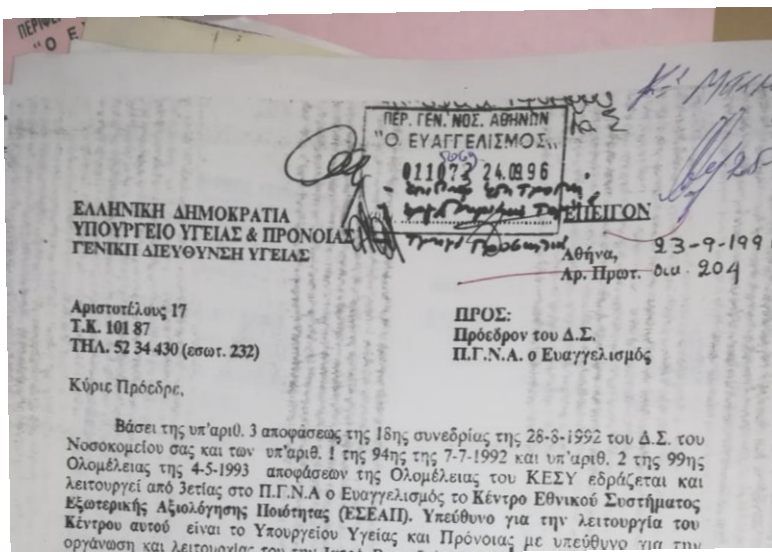 ΠΕΡΙΦΕ
"Ο Ε
ΠΕΡ. ΓΕΝ. ΝΟΣ. ΑΘΗΝΩΝ
"Ο ΕΥΑΓΓΕΛΙΣΜΟΣ"
011073 24.09.96
ΕΛΛΗΝΙΚΗ ΔΗΜΟΚΡΑΤΙΑ
ΥΠΟΥΡΓΕΙΟ ΥΓΕΙΑΣ & ΠΡΟΝΟΙΑΣ
ΓΕΝΙΚΗ ΔΙΕΥΘΥΝΣΗ ΥΓΕΙΑΣ
ΕΠΕΙΓΟΝ
Αθήνα, 23-9-199
Αρ. Πρωτ. οικ. 204
Αριστοτέλους 17
Τ.Κ. 101 87
ΤΗΛ. 52 34 430 (εσωτ. 232)
ΠΡΟΣ:
Πρόεδρον του Δ.Σ.
Π.Γ.Ν.Α. ο Ευαγγελισμός
Κύριε Πρόεδρε,
Βάσει της υπ'αριθ. 3 αποφάσεως της 18ης συνεδρίας της 28-8-1992 του Δ.Σ. του
Νοσοκομείου σας και των υπ'αριθ. 1 της 94ης της 7-7-1992 και υπ'αριθ. 2 της 99ης
Ολομέλειας της 4-5-1993 αποφάσεων της Ολομέλειας του ΚΕΣΥ εδράζεται και
λειτουργεί από 3ετίας στο Π.Γ.Ν.Α ο Ευαγγελισμός το Κέντρο Εθνικού Συστήματος
Εξωτερικής Αξιολόγησης Ποιότητας (ΕΣΕΑΠ). Υπεύθυνο για την λειτουργία του
Κέντρου αυτού είναι το Υπουργείου Υγείας και Πρόνοιας με υπεύθυνο για την
οργάνωση και λειτουργίας του την